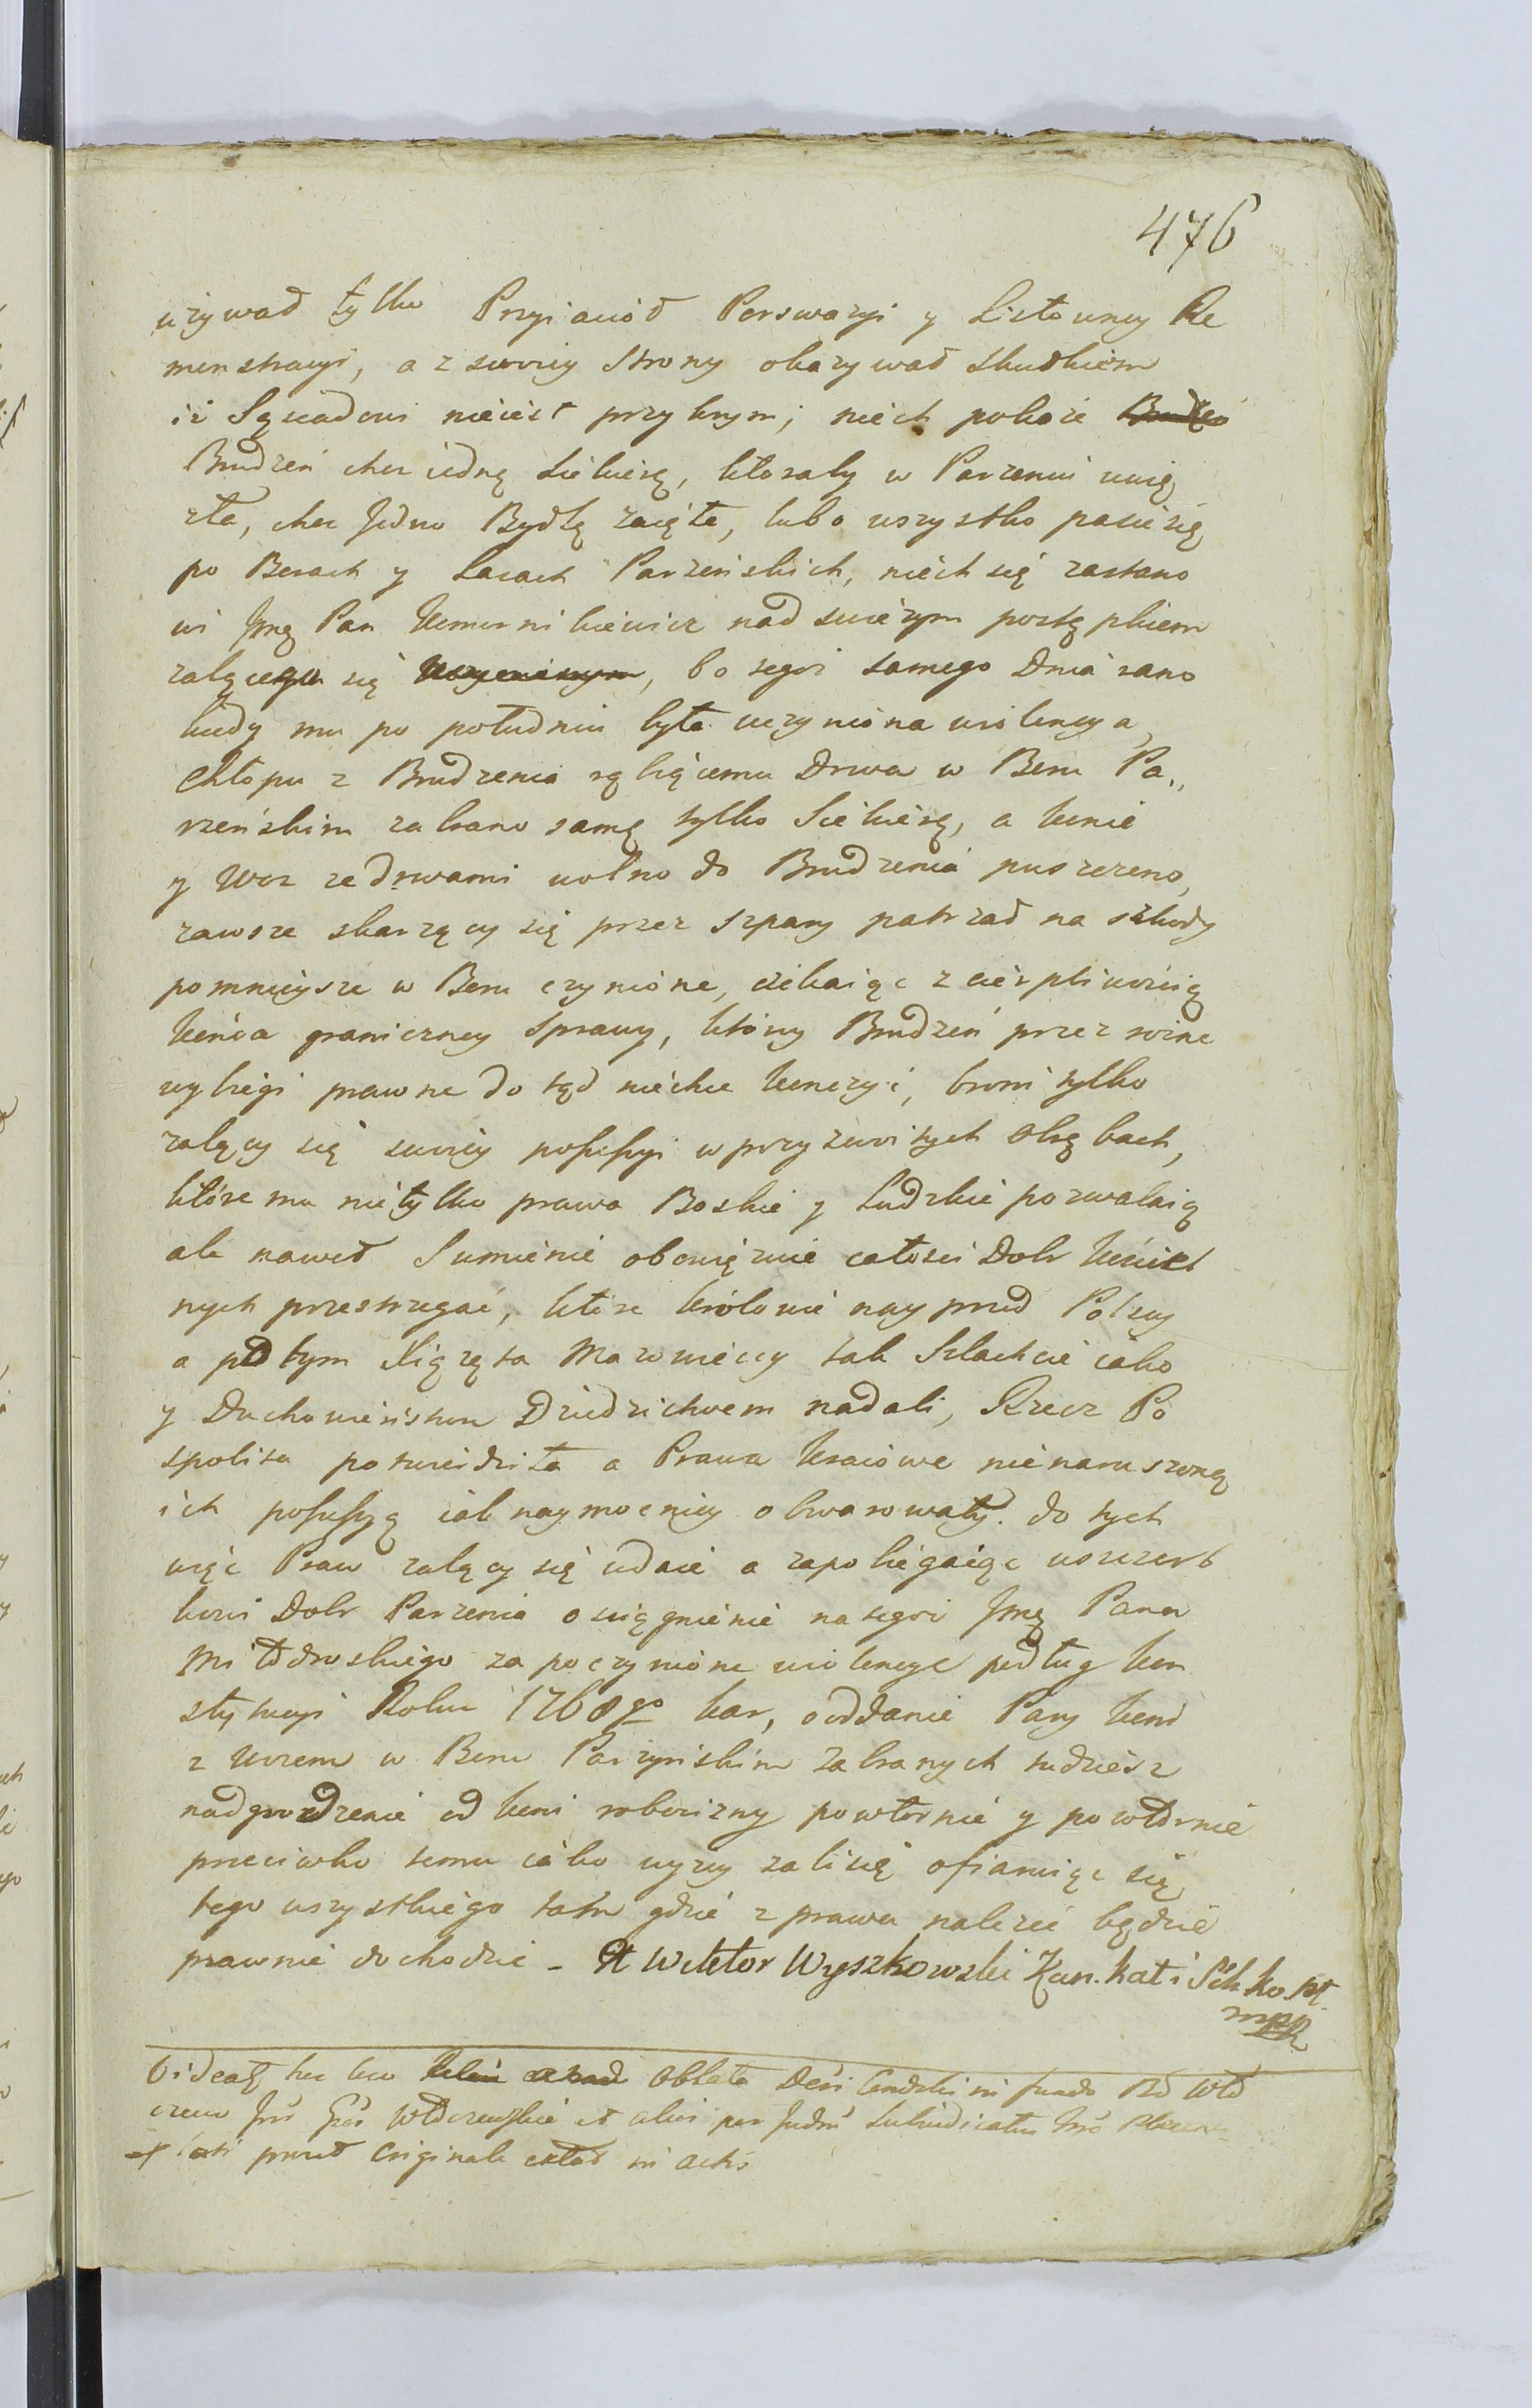 476
używał tylko Przyiaciół Perswazyi y Listowney Re
menstracyi, a z swoiey Strony okazywał skutkiem
iż Sąsiadowi nieiest przykrym; niech pokaże Brudzeń
Brudzeń choc iedną Siekierę, ktoraby w Parzeniu uwię
zła, choc Jedno Bydłę zaięte, lubo wszystko pasie się
po Borach y Lasach Parzeńskich, niech się zastano
wi Jmę Pan Komornikiewicz nad swieżym postępkiem
żalącego się uczynionym, bo tegoż samego Dnia rano
kiedy mu po południu była uczyniona wiolencya,
Chłopu z Brudzenia rąbiącemu Drwa w Boru Pa„
rzeńskim zabrano samę tylko Siekierę, a konie
y Woz ze drwami wolno do Brudzenia puszczono,
zawsze skarzący się przez szpary patrzał na szkody
pomnieysze w Boru czynione, czekaiąc z cierpliwością
końca graniczney sprawy, ktorey Brudzeń przez rożne
wybiegi prawne do tąd niechce konczyć, broni tylko
żalący się swoiey possessyi w przyzwoitych obrębach,
które mu nietylko prawa Boskie y Ludzkie pozwalaią
ale nawet Sumienie obowięzuie całosci Dobr Kościel
nych przestrzegać, które krolowie nayprzod Polscy
a potym Xiążęta Mazowieccy tak Szlachcie iako
y Duchowieństwu Dziedzictwem nadali, Rzecz Po
spolita potwierdziła a Prawa kraiowe nienaruszoną
ich possessyą iak naymocniey obwarowały. do tych
więc Praw żalący się udaie a zapobiegaiąc uszczerb
kowi Dobr Parzenia osiągnienie na tegoż Jmę Pana
Mi
za poczynione wiolencye podług kon
stytucyi Roku 1768go kar, o oddanie Pary koni
z wozem w Boru Parzyńskim zabranych tudziesz
nadgrodzenie od koni robocizny powtornie y powtornie
przeciwko temu iako wyzey żali się ofiaruiąc się
tego wszystkiego tam gdzie z prawa należeć będzie
prawnie dochodzic - X Wiktor Wyszkowski Kan. Kat i
mpp
Oblata
et alios per
prout Originale in Actis